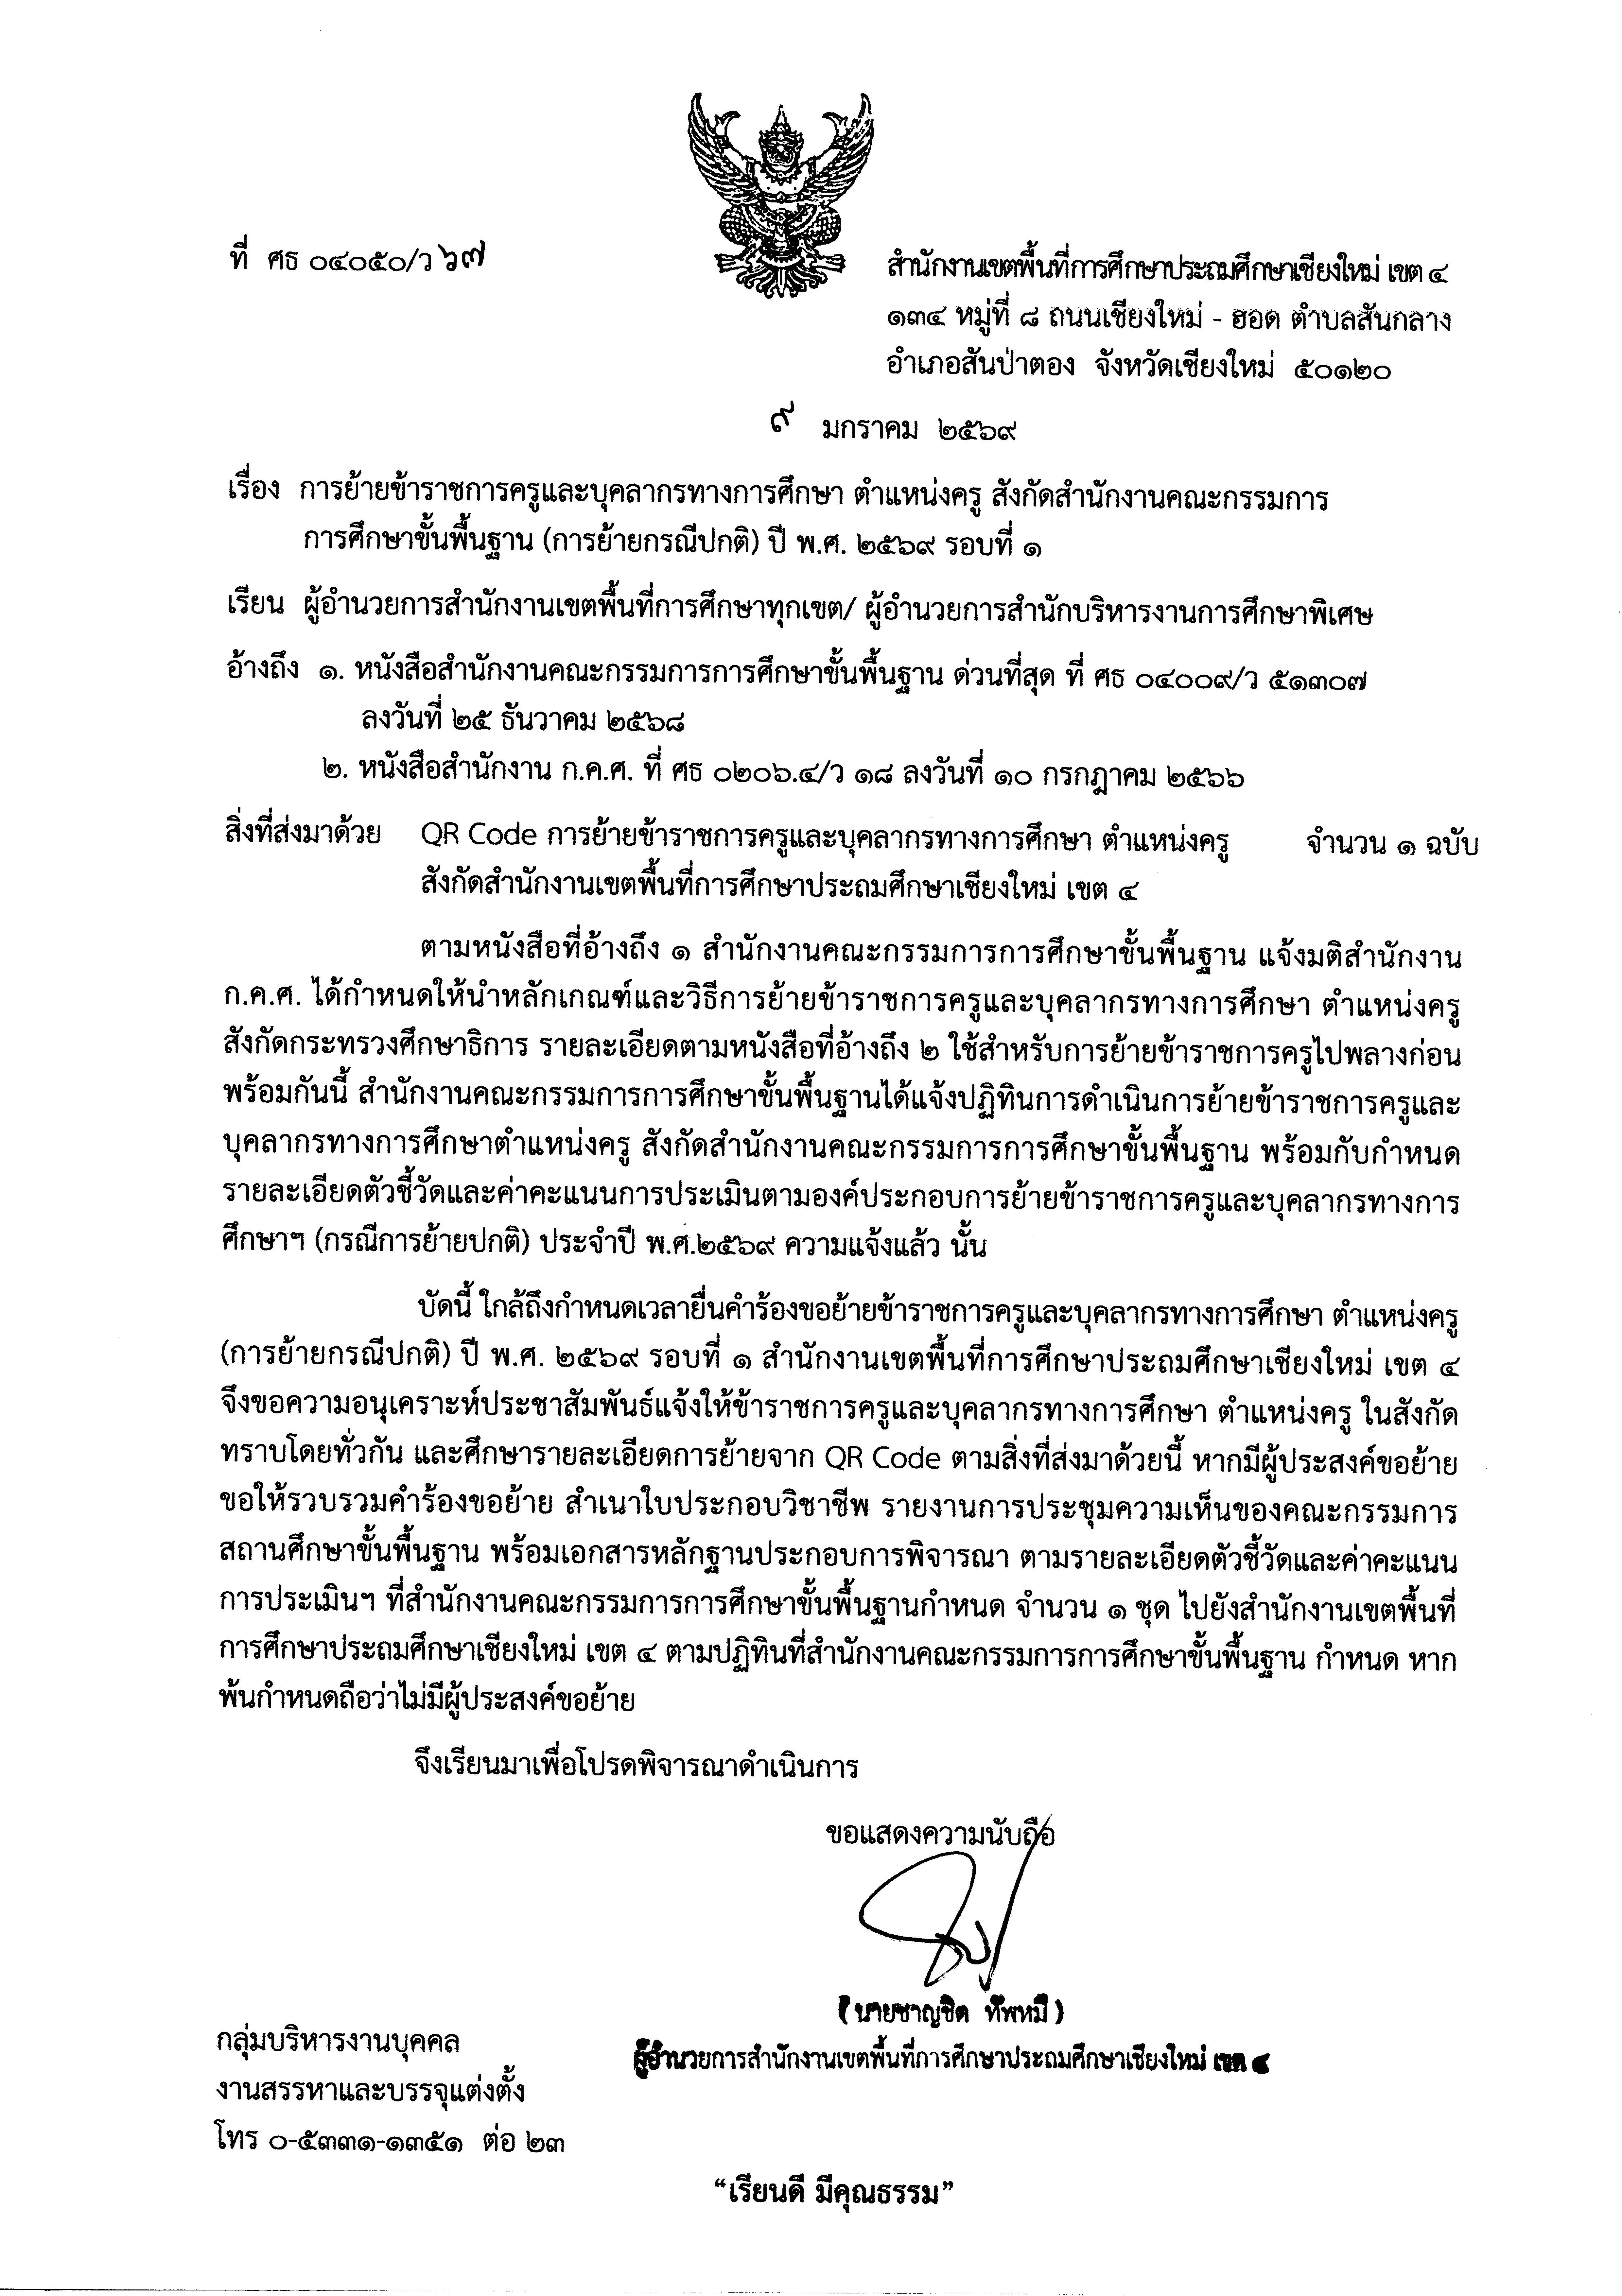 ที่ ศธ ๐๔๐๕๐/ว ๖๗
สำนักงานเขตพื้นที่การศึกษาประถมศึกษาเชียงใหม่ เขต ๔
๑๓๔ หมู่ที่ ๘ ถนนเชียงใหม่ - ฮอด ตำบลสันกลาง
อำเภอสันป่าตอง จังหวัดเชียงใหม่ ๕๐๑๒๐
๙ มกราคม ๒๕๖๙
เรื่อง การย้ายข้าราชการครูและบุคลากรทางการศึกษา ตำแหน่งครู สังกัดสำนักงานคณะกรรมการ
การศึกษาขั้นพื้นฐาน (การย้ายกรณีปกติ) ปี พ.ศ. ๒๕๖๙ รอบที่ ๑
เรียน ผู้อำนวยการสำนักงานเขตพื้นที่การศึกษาทุกเขต/ ผู้อำนวยการสำนักบริหารงานการศึกษาพิเศษ
อ้างถึง ๑. หนังสือสำนักงานคณะกรรมการการศึกษาขั้นพื้นฐาน ด่วนที่สุด ที่ ศธ ๐๔๐๐๙/ว ๕๑๓๐๗
ลงวันที่ ๒๕ ธันวาคม ๒๕๖๘
๒. หนังสือสำนักงาน ก.ค.ศ. ที่ ศธ ๐๒๐๖.๔/ว ๑๘ ลงวันที่ ๑๐ กรกฎาคม ๒๕๖๖
สิ่งที่ส่งมาด้วย QR Code การย้ายข้าราชการครูและบุคลากรทางการศึกษา ตำแหน่งครู จำนวน ๑ ฉบับ
สังกัดสำนักงานเขตพื้นที่การศึกษาประถมศึกษาเชียงใหม่ เขต ๔
ตามหนังสือที่อ้างถึง ๑ สำนักงานคณะกรรมการการศึกษาขั้นพื้นฐาน แจ้งมติสำนักงาน
ก.ค.ศ. ได้กำหนดให้นำหลักเกณฑ์และวิธีการย้ายข้าราชการครูและบุคลากรทางการศึกษา ตำแหน่งครู
สังกัดกระทรวงศึกษาธิการ รายละเอียดตามหนังสือที่อ้างถึง ๒ ใช้สำหรับการย้ายข้าราชการครูไปพลางก่อน
พร้อมกันนี้ สำนักงานคณะกรรมการการศึกษาขั้นพื้นฐานได้แจ้งปฏิทินการดำเนินการย้ายข้าราชการครูและ
บุคลากรทางการศึกษาตำแหน่งครู สังกัดสำนักงานคณะกรรมการการศึกษาขั้นพื้นฐาน พร้อมกับกำหนด
รายละเอียดตัวชี้วัดและค่าคะแนนการประเมินตามองค์ประกอบการย้ายข้าราชการครูและบุคลากรทางการ
ศึกษาฯ (กรณีการย้ายปกติ) ประจำปี พ.ศ.๒๕๖๙ ความแจ้งแล้ว นั้น
บัดนี้ ใกล้ถึงกำหนดเวลายื่นคำร้องขอย้ายข้าราชการครูและบุคลากรทางการศึกษา ตำแหน่งครู
(การย้ายกรณีปกติ) ปี พ.ศ. ๒๕๖๙ รอบที่ ๑ สำนักงานเขตพื้นที่การศึกษาประถมศึกษาเชียงใหม่ เขต ๔
จึงขอความอนุเคราะห์ประชาสัมพันธ์แจ้งให้ข้าราชการครูและบุคลากรทางการศึกษา ตำแหน่งครู ในสังกัด
ทราบโดยทั่วกัน และศึกษารายละเอียดการย้ายจาก QR Code ตามสิ่งที่ส่งมาด้วยนี้ หากมีผู้ประสงค์ขอย้าย
ขอให้รวบรวมคำร้องขอย้าย สำเนาใบประกอบวิชาชีพ รายงานการประชุมความเห็นของคณะกรรมการ
สถานศึกษาขั้นพื้นฐาน พร้อมเอกสารหลักฐานประกอบการพิจารณา ตามรายละเอียดตัวชี้วัดและค่าคะแนน
การประเมินฯ ที่สำนักงานคณะกรรมการการศึกษาขั้นพื้นฐานกำหนด จำนวน ๑ ชุด ไปยังสำนักงานเขตพื้นที่
การศึกษาประถมศึกษาเชียงใหม่ เขต ๔ ตามปฏิทินที่สำนักงานคณะกรรมการการศึกษาขั้นพื้นฐาน กำหนด หาก
พ้นกำหนดถือว่าไม่มีผู้ประสงค์ขอย้าย
จึงเรียนมาเพื่อโปรดพิจารณาดำเนินการ
ขอแสดงความนับถือ
(นายชาญชิต ทัพหมี)
ผู้อำนวยการสำนักงานเขตพื้นที่การศึกษาประถมศึกษาเชียงใหม่ เขต ๔
กลุ่มบริหารงานบุคคล
งานสรรหาและบรรจุแต่งตั้ง
โทร ๐-๕๓๓๑-๑๓๕๑ ต่อ ๒๓
“เรียนดี มีคุณธรรม”